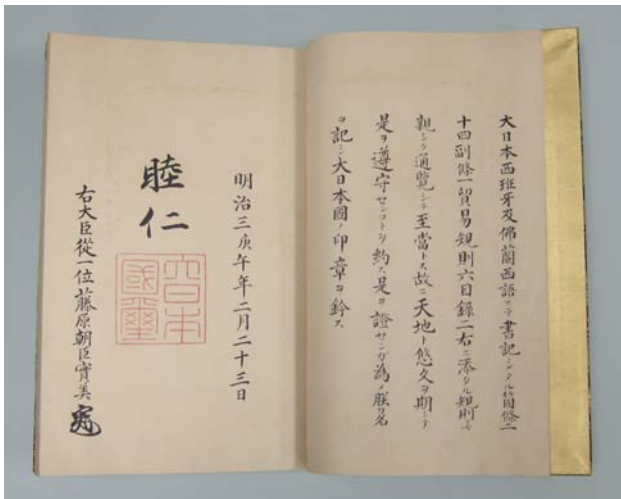 大日本西班牙及佛蘭西語ニテ書記シタル箇條二
十四副條一貿易規則六目錄二右ニ添タル規則ヲ
親シク通覽シテ至當トス故ニ天地ト悠久ヲ期シテ
是ヲ遵守センコトヲ約ス是ヲ證センガ為メ朕ガ名
ヲ記シ大日本國ノ印章ヲ鈐ス
明治三庚午年二月二十三日
睦仁
大日本
國璽
右大臣從一位藤原朝臣實美